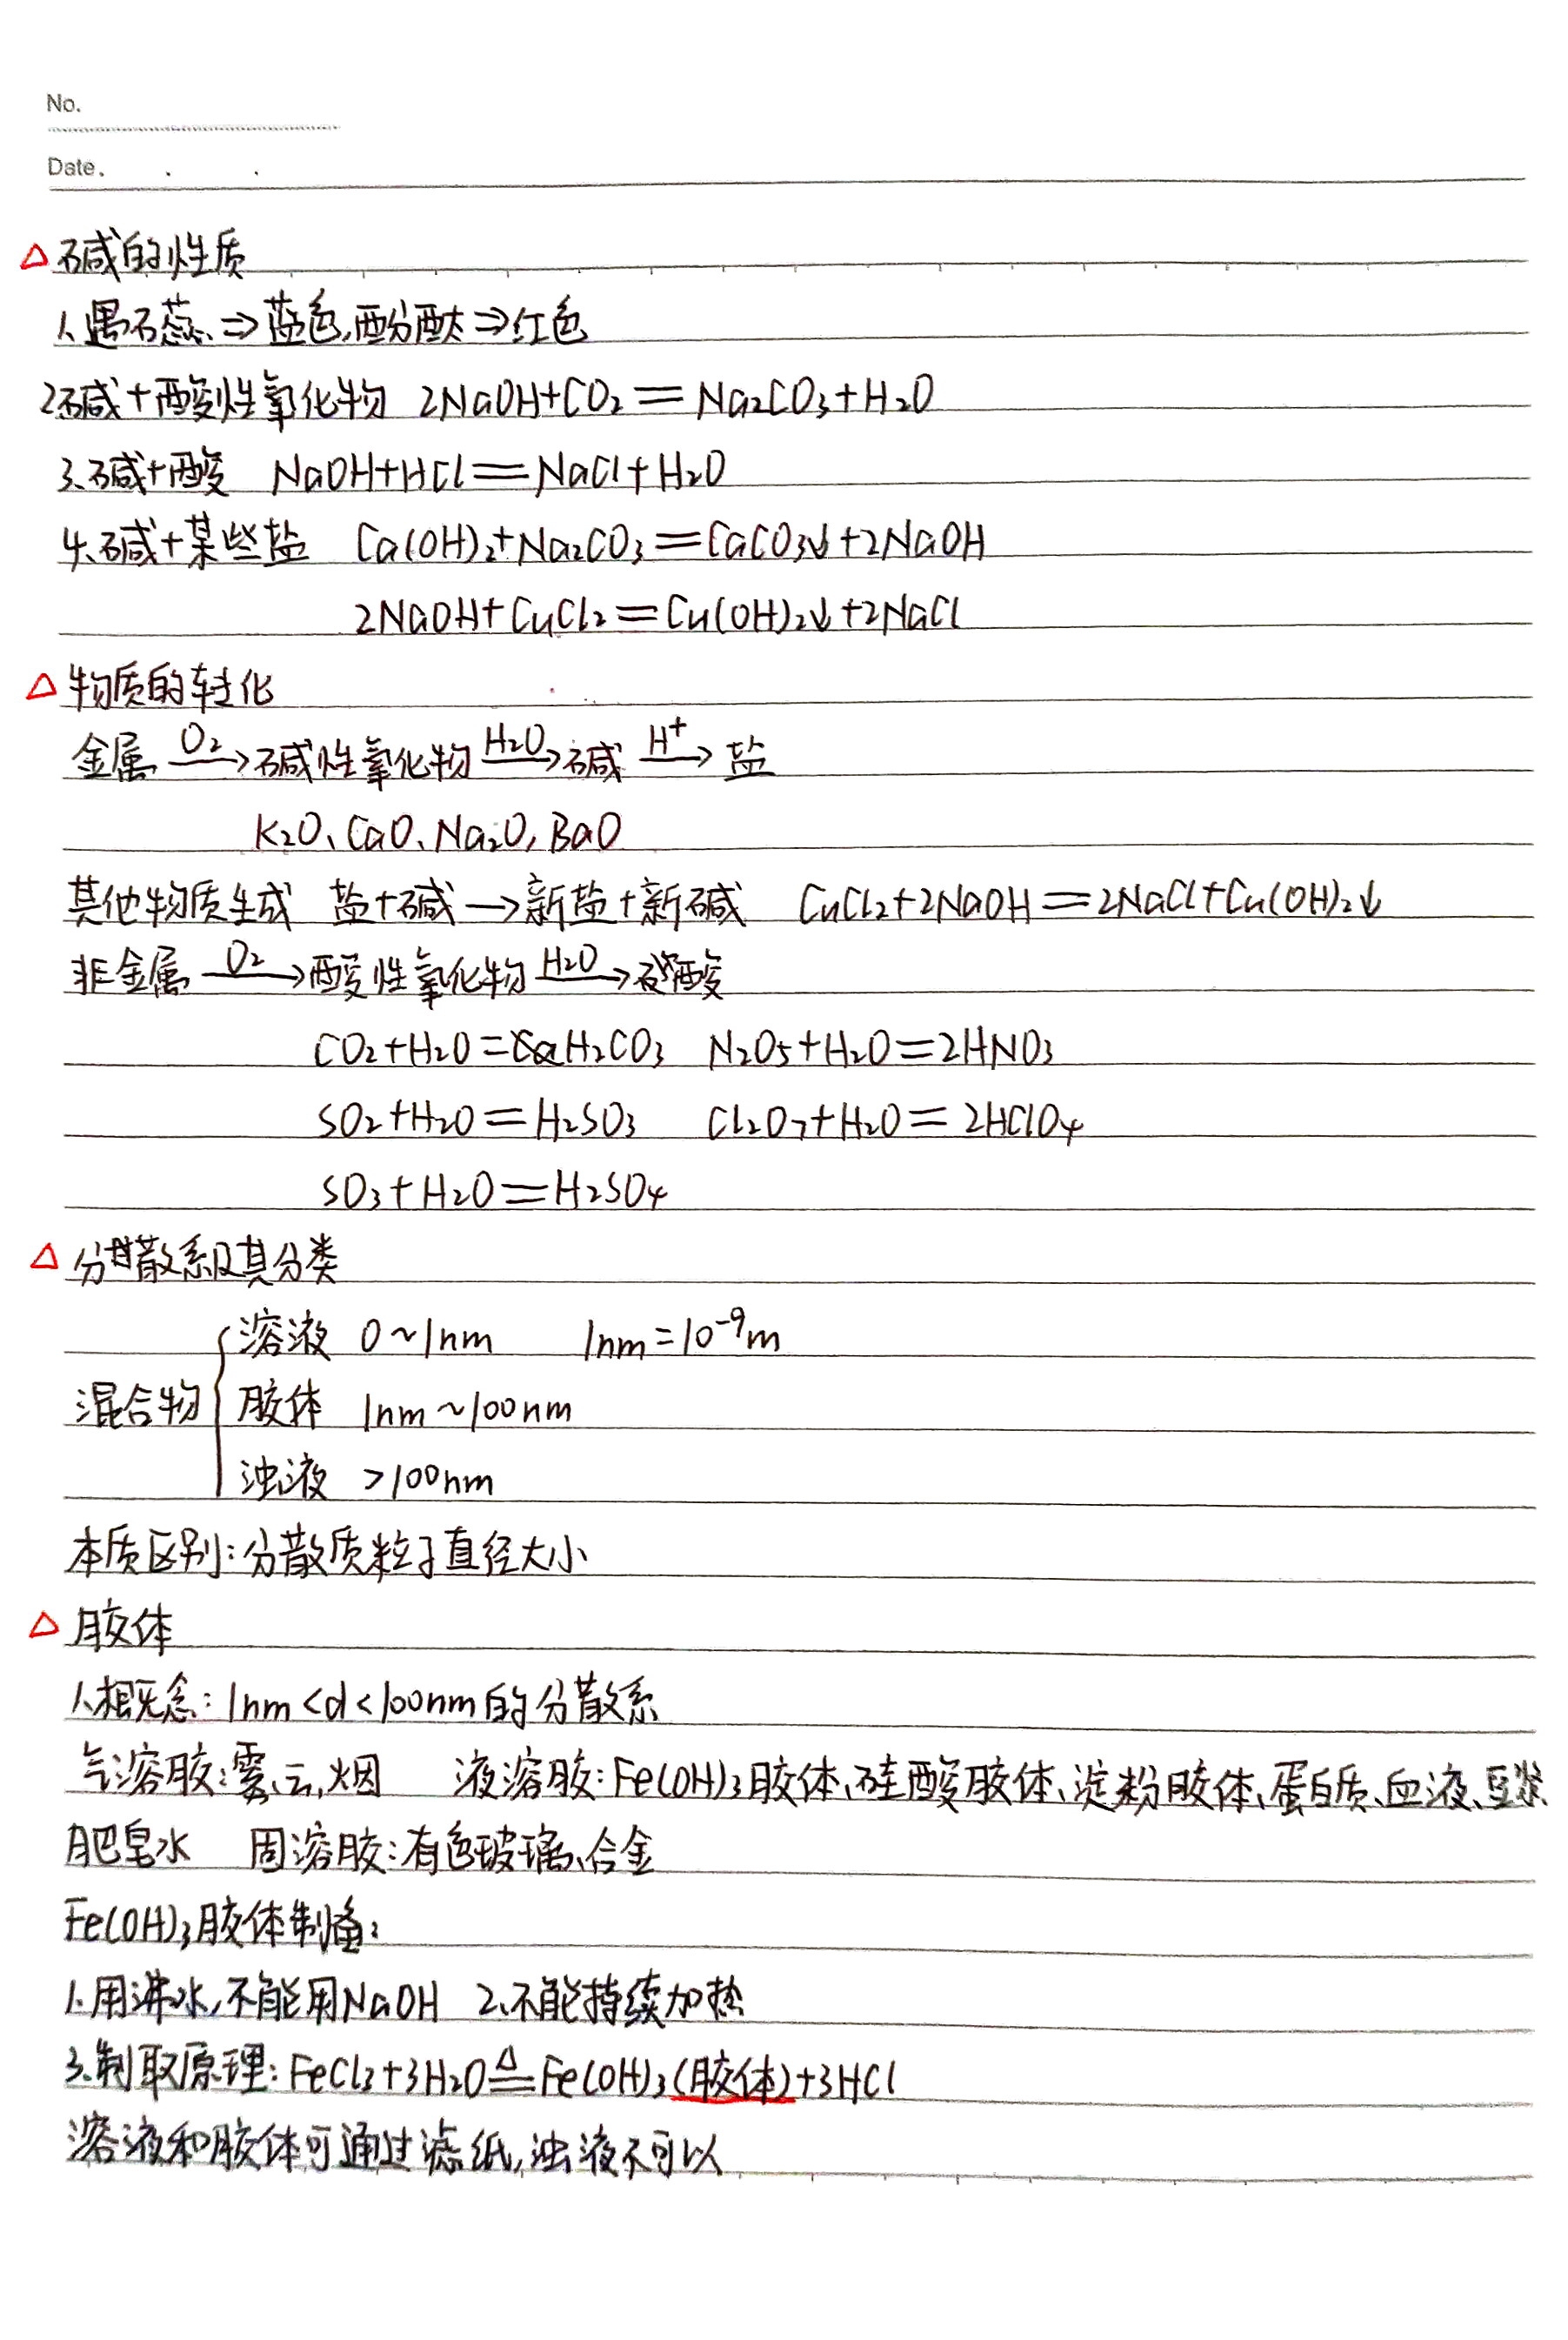 No.
Date.
△碱的性质
1、遇石蕊⇒蓝色,酚酞⇒红色
2碱+酸性氧化物 2NaOH+CO₂＝Na₂CO₃+H₂O
3、碱+酸 NaOH+HCl＝NaCl+H₂O
4、碱+某些盐 Ca(OH)₂+Na₂CO₃＝CaCO₃↓+2NaOH
2NaOH+CuCl₂＝Cu(OH)₂↓+2NaCl
△物质的转化
金属 —O₂→ 碱性氧化物 —H₂O→ 碱 —H⁺→ 盐
K₂O、CaO、Na₂O, BaO
其他物质生成 盐+碱→新盐+新碱 CuCl₂+2NaOH＝2NaCl+Cu(OH)₂↓
非金属 —O₂→ 酸性氧化物 —H₂O→ 酸
CO₂+H₂O＝H₂CO₃ N₂O₅+H₂O＝2HNO₃
SO₂+H₂O＝H₂SO₃ Cl₂O₇+H₂O＝2HClO₄
SO₃+H₂O＝H₂SO₄
△分散系及其分类
溶液 0~1nm 1nm=10⁻⁹m
混合物 胶体 1nm~100nm
浊液 >100nm
本质区别:分散质粒子直径大小
△胶体
1、概念:1nm<d<100nm的分散系
气溶胶:雾、云,烟 液溶胶:Fe(OH)₃胶体、硅酸胶体、淀粉胶体、蛋白质、血液、豆浆
肥皂水 固溶胶:有色玻璃、合金
Fe(OH)₃胶体制备:
1.用沸水,不能用NaOH 2、不能持续加热
3、制取原理:FeCl₃+3H₂O≜Fe(OH)₃(胶体)+3HCl
溶液和胶体可通过滤纸,浊液不可以